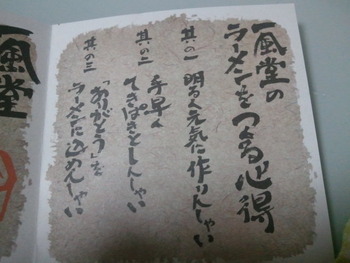 一風堂の
ラーメンをつくる心得
其の一
明るく元気に作りんしゃい
其の二
手早く
てきぱきとしんしゃい
其の三
「ありがとう」を
ラーメンに込めんしゃい
一風堂